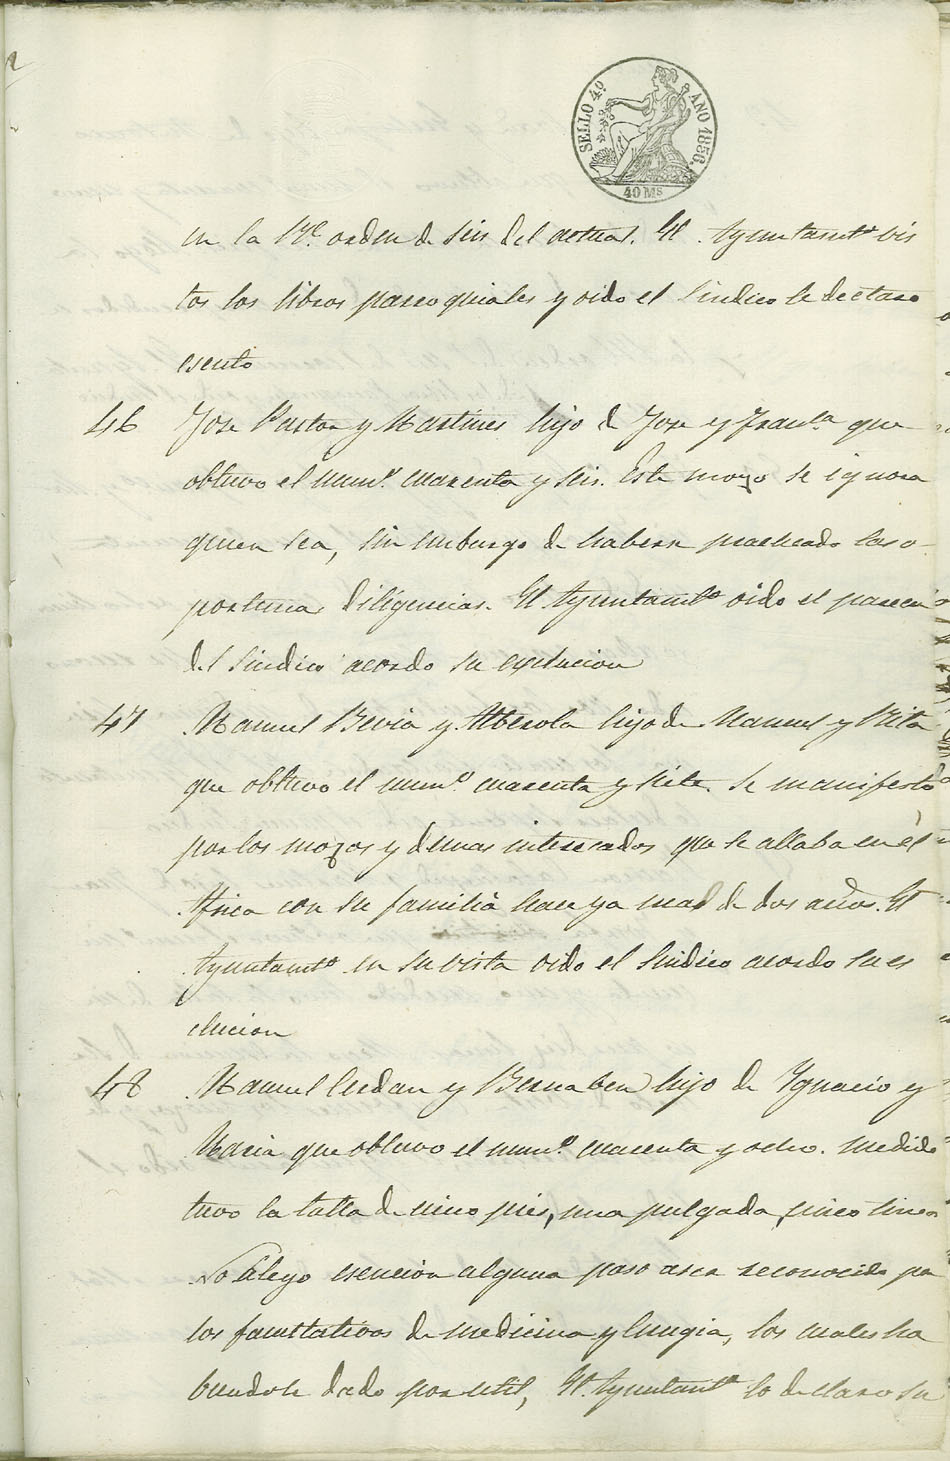 SELLO 4º AÑO 1856.
40 Ms
en la Rl. orden de seis del actual. El Ayuntamto vis
tos los libros parroquiales y oido el Sindico le declaro
esento
46 Jose Pastor y Martines hijo de Jose y Franca que
obtuvo el numo. cuarenta y seis. Este mozo se ignora
quien sea, sin embargo de haberse practicado las o
portunas diligencias. El Ayuntamto oido el parecer
del Sindico acordo su esclucion
47 Manuel Bevia y Alberola hijo de Manuel y Rita
que obtuvo el numo. cuarenta y siete. Se manifesto
por los mozos y demas interesados que se allaba en el
Africa con su familia hace ya mas de dos años. El
Ayuntamto en su vista oido el Sindico acordo su es
clucion
48 Manuel Cerdan y Bernabeu hijo de Ygnacio y
Maria que obtuvo el numo. cuarenta y ocho. medido
tuvo la talla de cinco pies, una pulgada, cinco lineas
No alego esencion alguna paso a ser reconocido por
los facultativos de medicina y cirugia, los cuales ha
biendole dado por util, El Ayuntamto lo declaro su